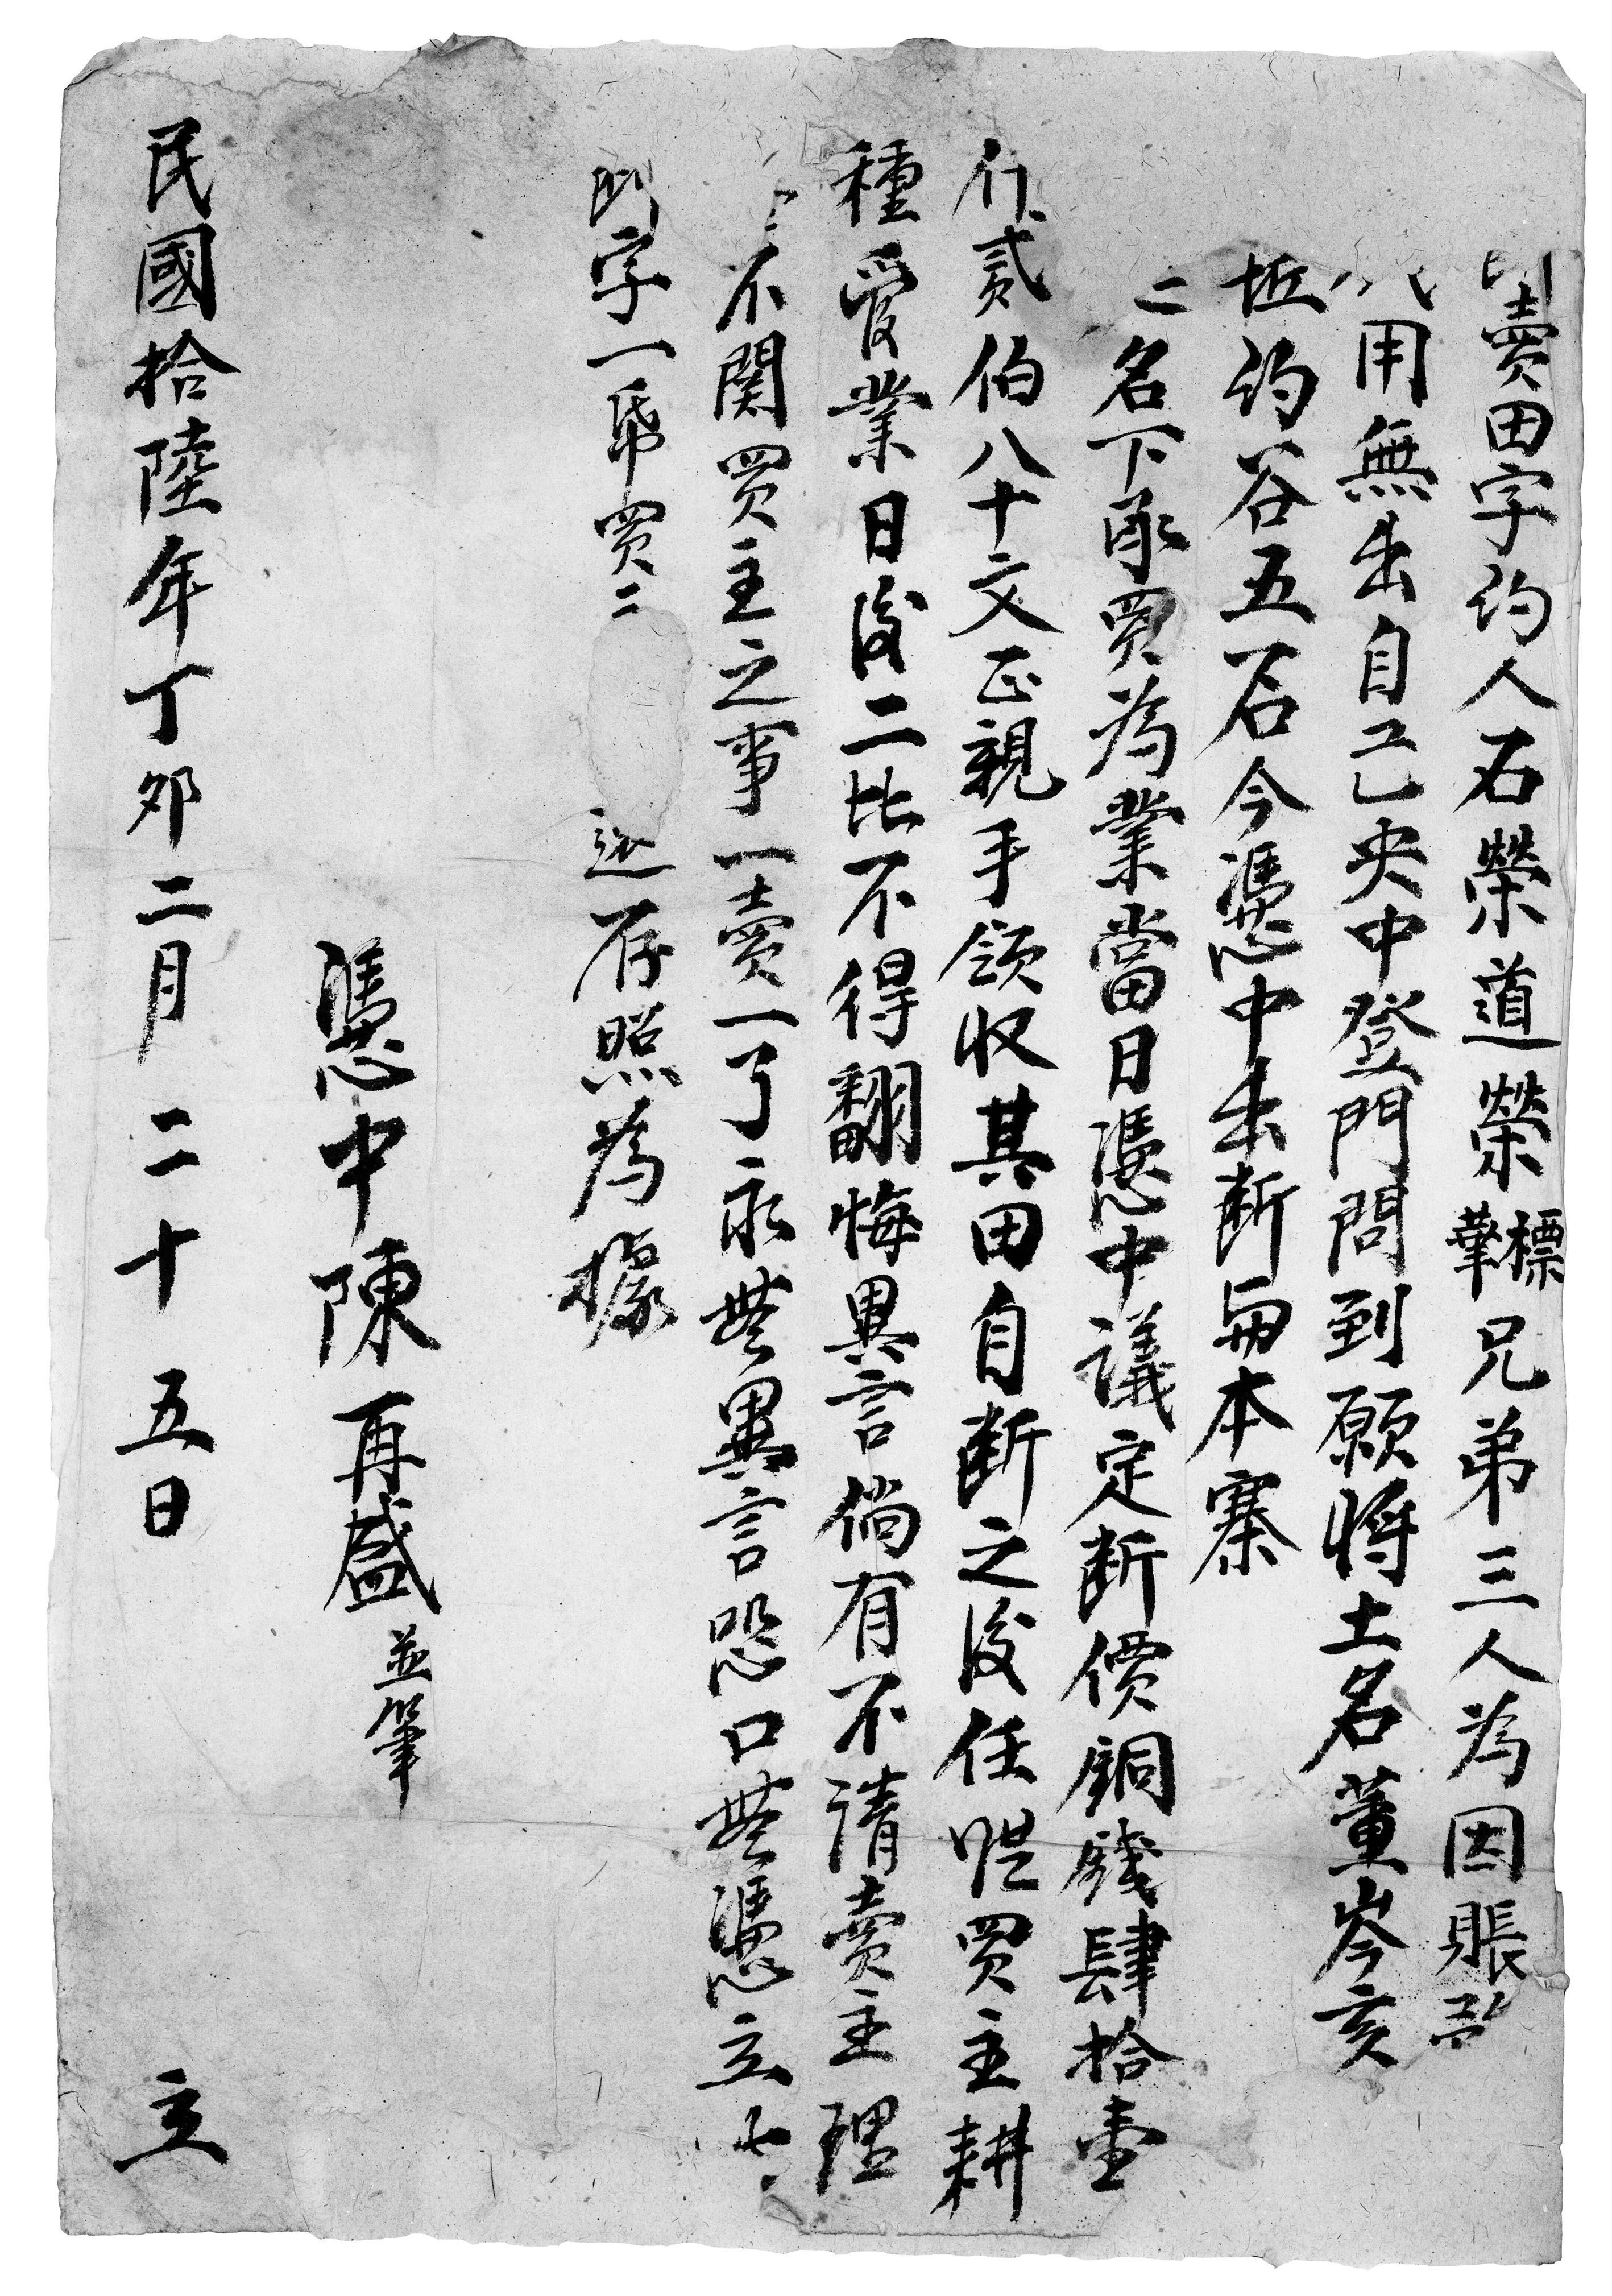 賣田字約人石榮道榮標華兄弟三人為因賬
用無出自己央中登門問到願將土名董岑亥
坵約谷五石今憑中出断與本寨
二名下承買為業當日憑中議定断價銅錢肆拾壹
仟貳伯八十文正親手領收其田自断之後任從買主耕
種管業日後二比不得翻悔異言倘有不清賣主理
不関買主之事一賣一了永無異言恐口無憑立
断字一帋買二 存照為據
憑中陳再盛並筆
民國拾陸年丁夘二月二十五日 立